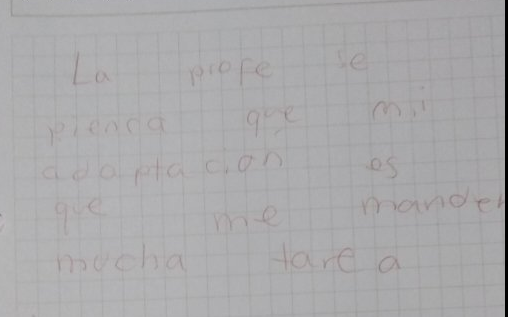 La profe se
piensa que mi
adaptación es
que me manden
mucha tarea